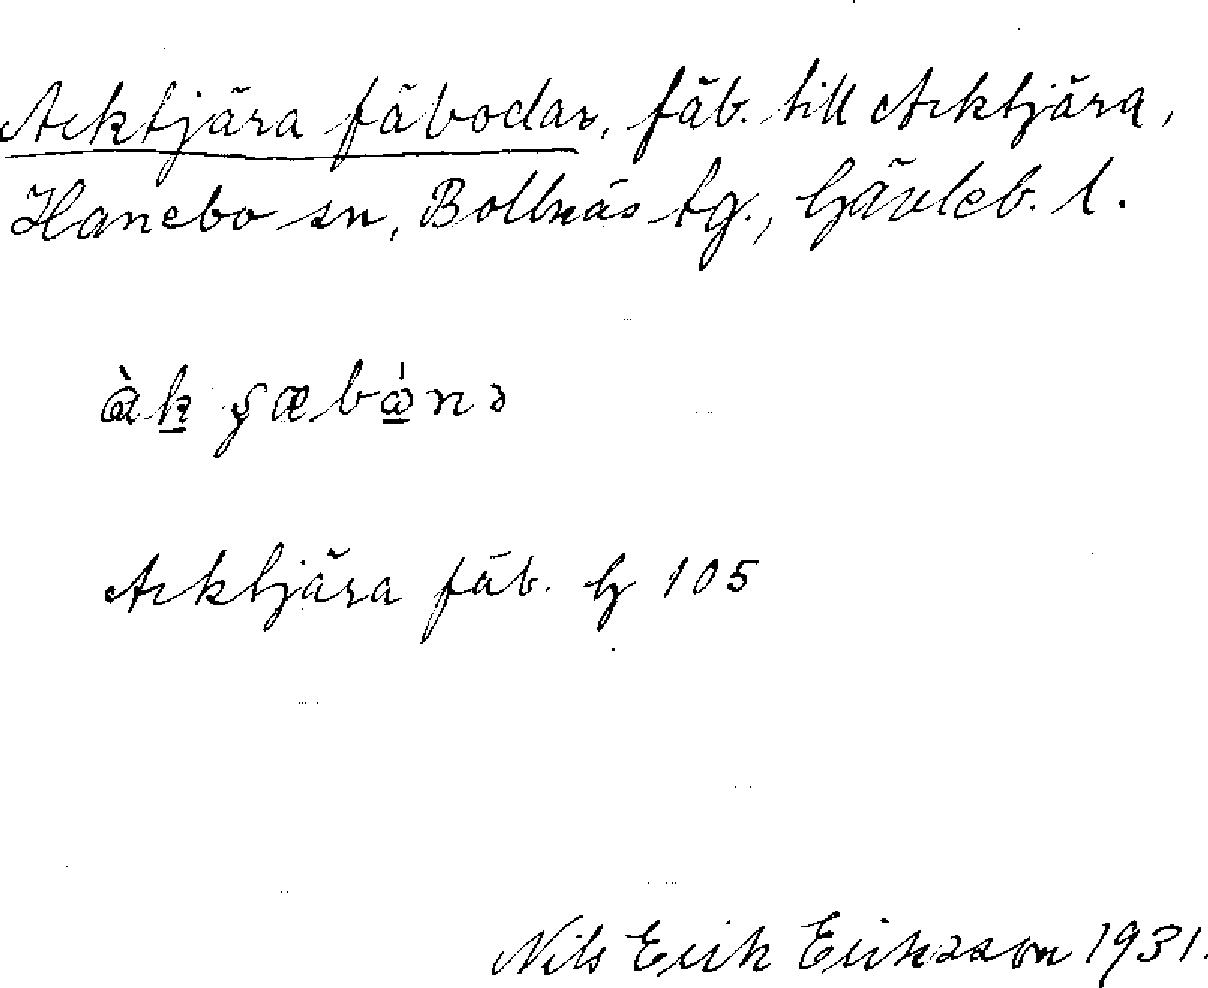 Acktjära fäbodar, fäb. till Acktjära,
Hanebo sn, Bollnäs tg., Gävleb. l.
Acktjära fäb. G 105
Nils Erik Eriksson 1931.